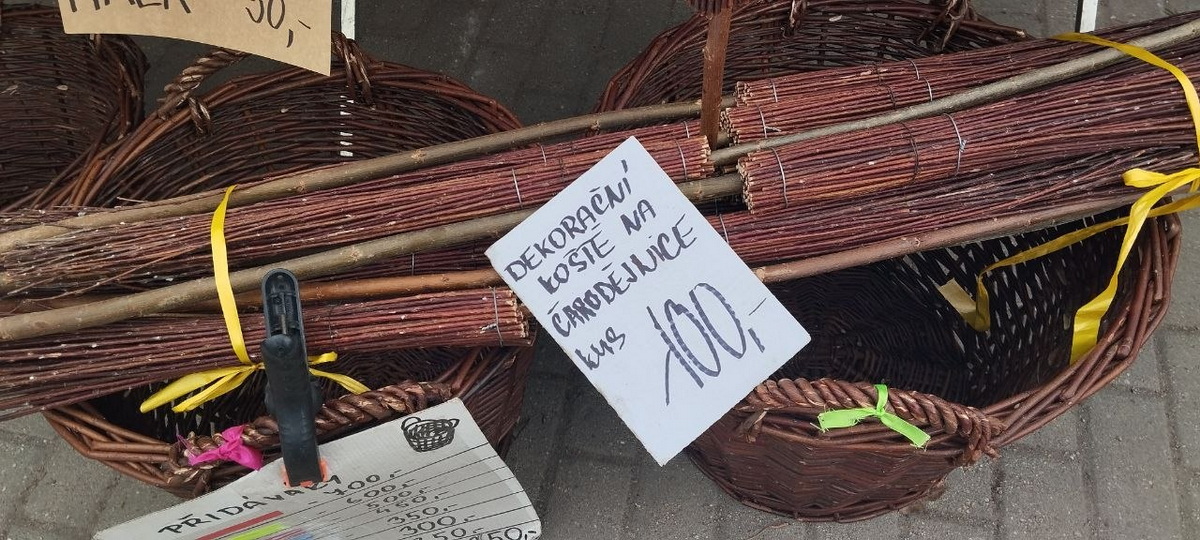 50,-
DEKORAČNÍ
KOŠTĚ NA
ČARODĚJNICE
kus 100,-
PŘIDÁVAKY
700,-
600,-
500,-
450,-
350,-
300,-